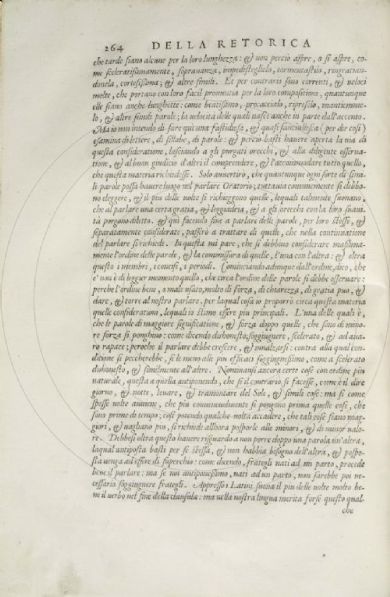 264 DELLA RETORICA
che tarde siano alcune per la loro lunghezza: & non perciò aspre, o sì aspre, co-
me sceleratissimamente, sopravanza,
dinela, cortesissima; & altre simili. Et per contrario sono correnti, & veloci
molte, che portano con loro facil prononcia per la loro compositione, quantunque
elle siano anche lunghette: come beatissimo, procacciolo,
lo, & altre simili parole; la velocità delle quali nasce anche in parte dall'accento.
Ma io non intendo di fare qui una fastidiosa, & quasi fanciullesca (per dir così)
esamina di lettere, di sillabe, di parole: & percio basti havere aperta la via di
questa consideratione, lasciando a gli purgati orecchi, & alla diligente osserva-
tione, & al buon giudicio d'altri il comprendere, & l'accommodare tutto quello,
che questa materia richiedesse. Solo avvertirò, che quantunque ogni sorte di simi-
li parole possa havere luogo nel parlare Oratorio; tuttavia communemente si debbo-
no eleggere, & il più delle volte si richieggono quelle, lequali talmente suonano,
che al parlare una certa gratia, & leggiadria, & a gli orecchi con la loro soavi-
tà porgano diletto. & qui facendo fine a parlare delle parole, per loro stesse, &
separatamente considerate, passerò a trattare di quello, che nella continuatione
del parlare si richiede. In questa mi pare, che si debbono considerare massima-
mente l'ordine delle parole, & la commissura di quelle, l'una con l'altra: & oltra
questo i membri, i concisi, i periodi. Cominciando adunque dall'ordine, dico, che
e' non è di leggier momento quello, che circa l'ordine delle parole si debbe osservare:
perche l'ordine bene, o male usato, molto di forza, di chiarezza, di gratia può, &
dare, & torre al nostro parlare, per laqual cosa io proporrò circa questa materia
quelle considerationi, lequali io stimo essere più principali. L'una delle quali è,
che le parole di maggiore significatione, & forza doppo quelle, che sono di mino-
re forza si ponghino: come dicendo dishonesto, soggiugnere, scelerato, & ad ava-
ro rapace: peroche il parlare debbe crescere, & innalzarsi: contra alla qual con-
ditione si peccherebbe, se le meno alle più efficaci soggiugnessimo, come a scelerato
dishonesto, & similmente all'altre. Nominansi ancora certe cose con ordine più
naturale, questa a quella anteponendo, che se il contrario si facesse, come è il dire
giorno, & notte, levare, & tramontare del Sole, & simili cose: ma sì come
spesse volte aviene, che più communemente si pongano prima quelle cose, che
sono prime di tempo; così potendo qualche volta accadere, che tali cose siano mag-
giori, & vagliano più, si richiede allhora posporle alle minori, & di minor valo-
re. Debbesi oltra questo havere riguardo a non porre doppo una parola un'altra,
laqual anteposta basti per se stessa, & non habbia bisogno dell'altra, & pospo-
sta venga ad essere di superchio: come dicendo, fratelli nati ad un parto, procede
bene il parlare: ma se noi anteponessimo, nati ad un parto, non sarebbe poi ne-
cessario soggiugnere fratelli. Appresso i Latini suona il più delle volte molto be-
ne il verbo nel fine della clausula: ma nella nostra lingua merita forse questo qual-
che